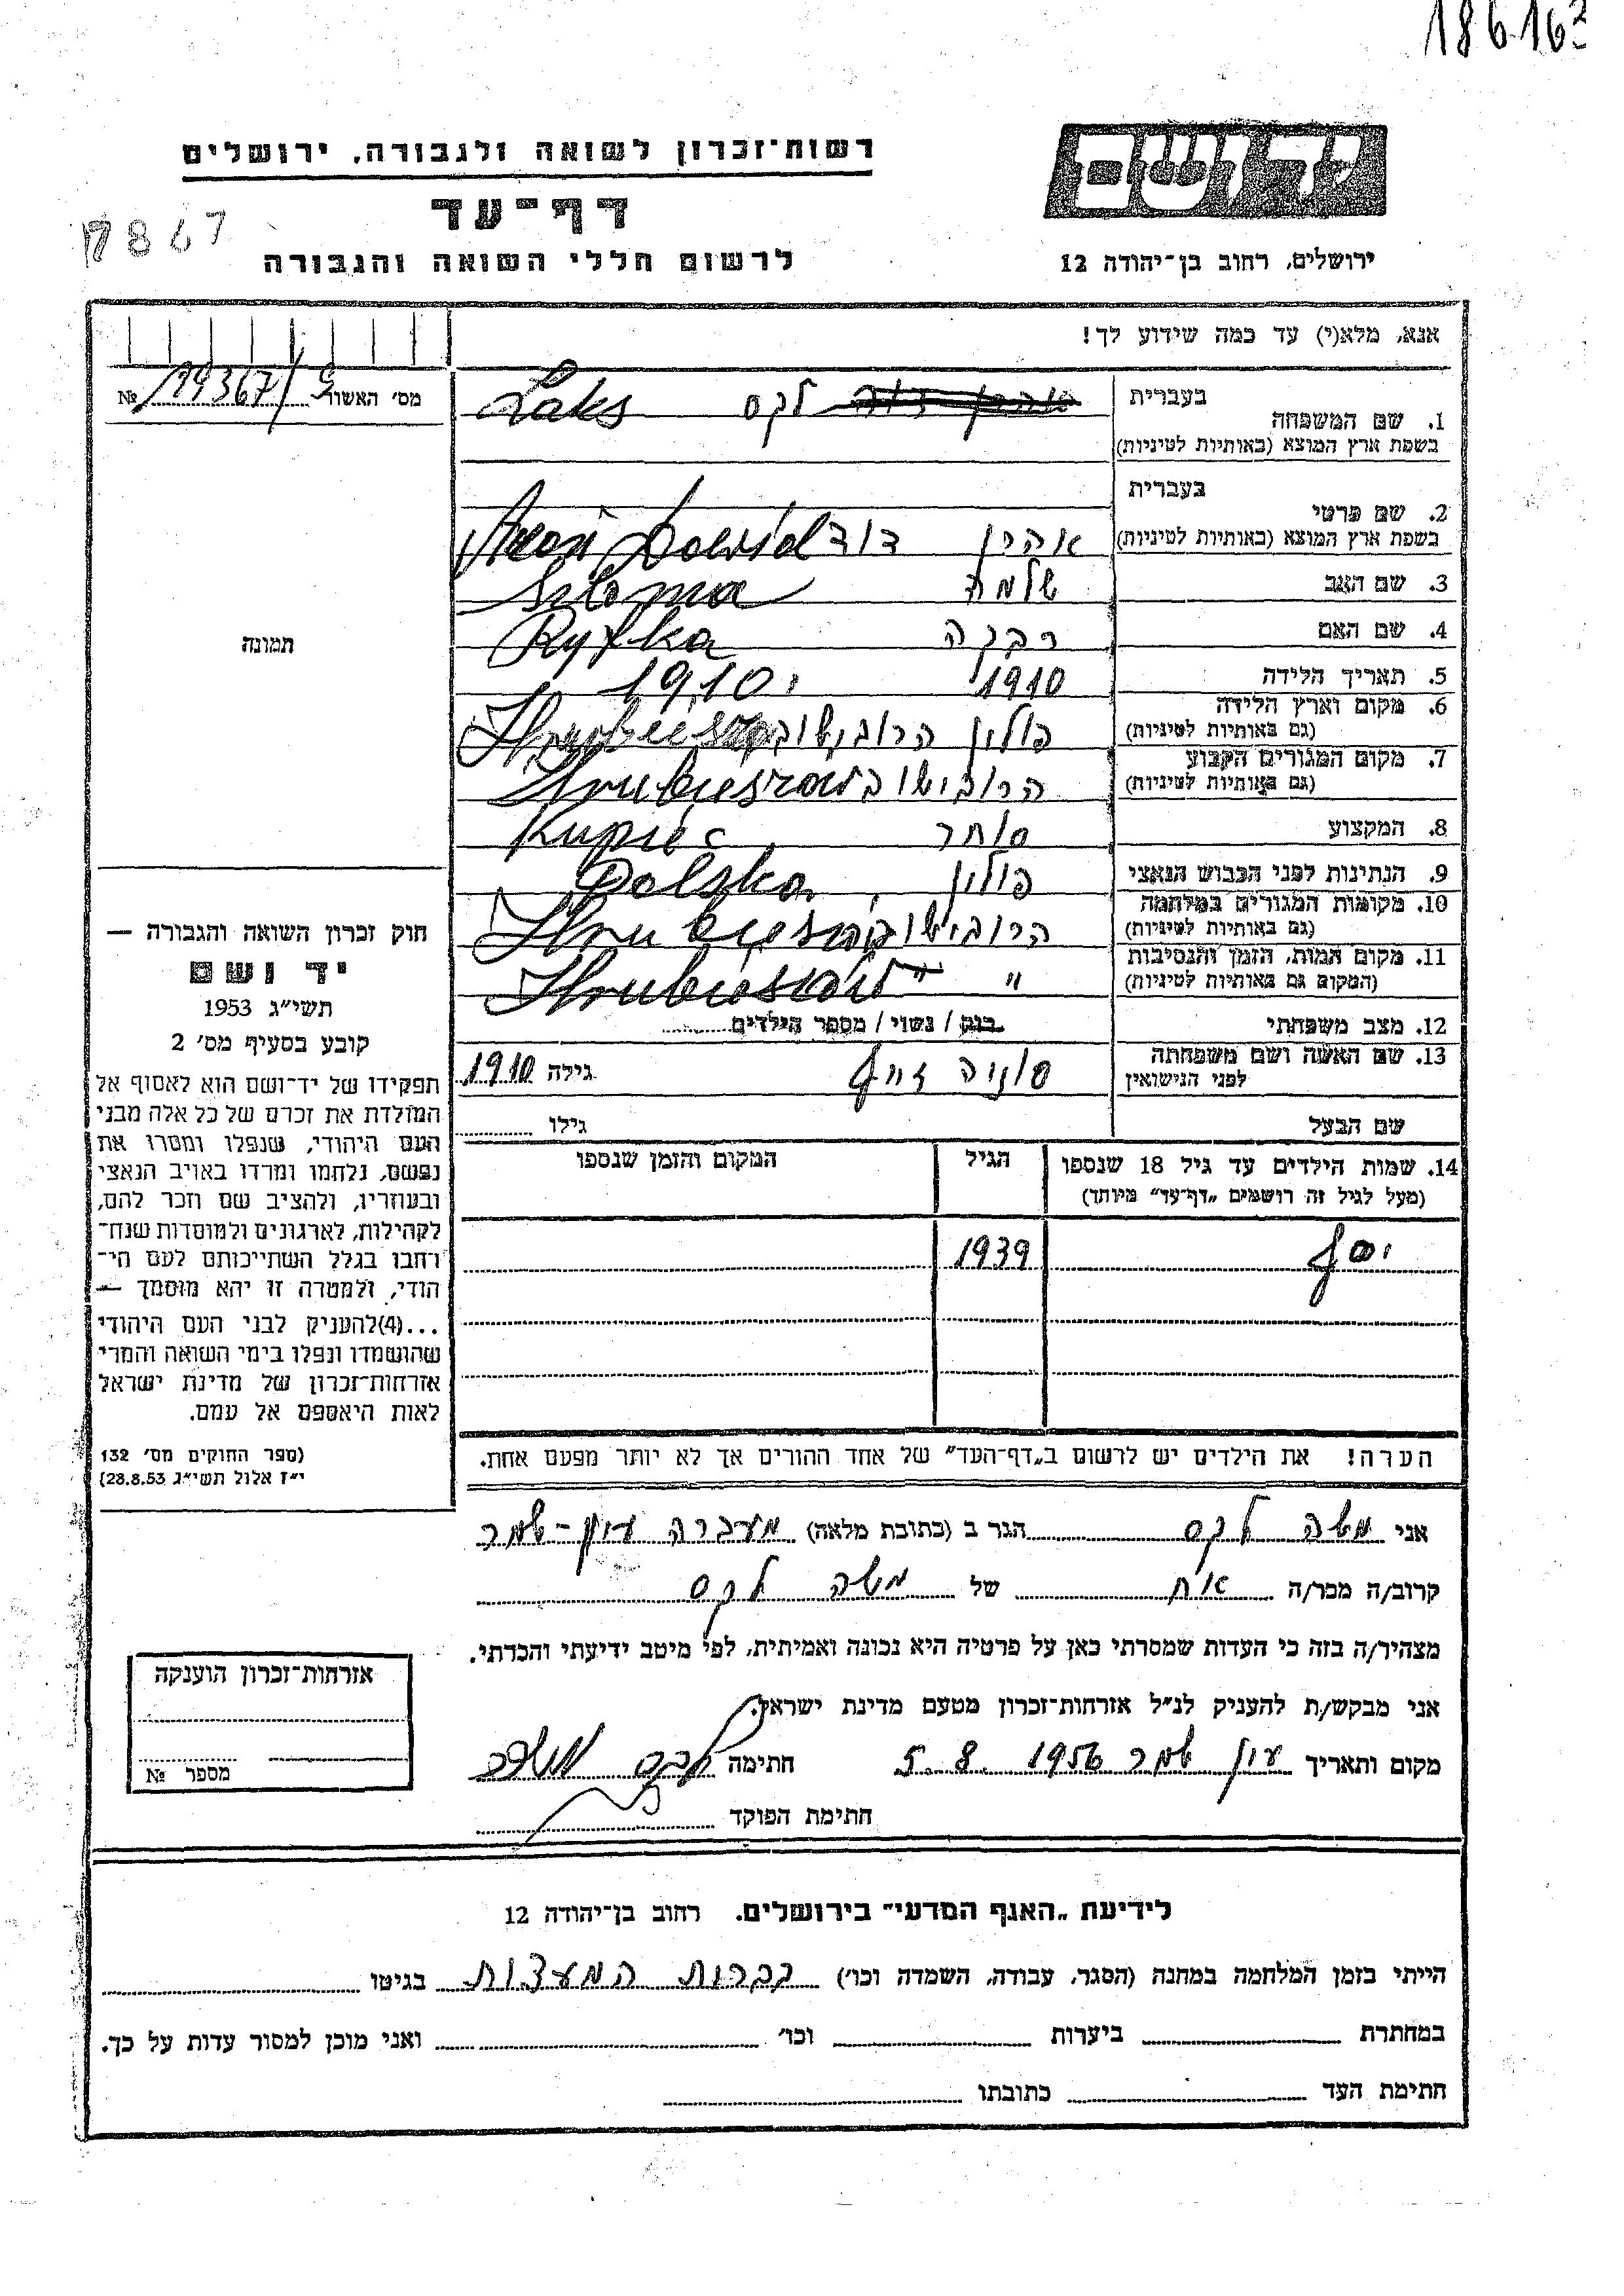 186163
יד ושם
רשות־זכרון לשואה ולגבורה, ירושלים
דף־עד
לרשום חללי השואה והגבורה
ירושלים, רחוב בן־יהודה 12
7867
אנא, מלא(י) עד כמה שידוע לך!
מס׳ האשור 199367/9 №
תמונה
1. שם המשפחה בעברית
בשפת ארץ המוצא (באותיות לטיניות)
לקס Laks
2. שם פרטי בעברית
בשפת ארץ המוצא (באותיות לטיניות)
אהרן דוד Dawid
3. שם האב שלמה Szloma
4. שם האם רבקה Ryfka
5. תאריך הלידה 1910 1910
6. מקום וארץ הלידה
(גם באותיות לטיניות)
פולין הרובישוב
7. מקום המגורים הקבוע
(גם באותיות לטיניות)
הרובישוב Hrubieszow
8. המקצוע סוחר Kupiec
9. הנתינות לפני הכבוש הנאצי פולין, Polska
10. מקומות המגורים במלחמה
(גם באותיות לטיניות)
הרובישוב Hrubieszow
11. מקום המות, הזמן והנסיבות
(המקום גם באותיות לטיניות)
" " Hrubieszow
12. מצב משפחתי רווק / נשוי / מספר הילדים
13. שם האשה ושם משפחתה
לפני הנישואין
סוניה גילה 1910
שם הבעל גילו
14. שמות הילדים עד גיל 18 שנספו הגיל המקום והזמן שנספו
(מעל לגיל זה רושמים „דף־עד״ מיוחד)
יוסף 1939
הערה! את הילדים יש לרשום ב„דף־העד״ של אחד ההורים אך לא יותר מפעם אחת.
חוק זכרון השואה והגבורה —
יד ושם
תשי״ג 1953
קובע בסעיף מס׳ 2
תפקידו של יד־ושם הוא לאסוף אל
המולדת את זכרם של כל אלה מבני
העם היהודי, שנפלו ומסרו את
נפשם, נלחמו ומרדו באויב הנאצי
ובעוזריו, ולהציב שם וזכר להם,
לקהילות, לארגונים ולמוסדות שנח־
רבו בגלל השתייכותם לעם הי־
הודי, ולמטרה זו יהא מוסמך —
...(4)להעניק לבני העם היהודי
שהושמדו ונפלו בימי השואה והמרי
אזרחות־זכרון של מדינת ישראל
לאות היאספם אל עמם.
(ספר החוקים מס׳ 132
י״ז אלול תשי״ג 28.8.53)
אני משה לקס הגר ב (כתובת מלאה) מעברה עין-שמר
קרוב/ה מכר/ה אח של משה לקס
מצהיר/ה בזה כי העדות שמסרתי כאן על פרטיה היא נכונה ואמיתית, לפי מיטב ידיעתי והכרתי.
אני מבקש/ת להעניק לנ״ל אזרחות־זכרון מטעם מדינת ישראל.
מקום ותאריך עין שמר 5.8.1956 חתימה לקס משה
חתימת הפוקד
אזרחות־זכרון הוענקה
מספר №
לידיעת „האגף המדעי״ בירושלים. רחוב בן־יהודה 12
הייתי בזמן המלחמה במחנה (הסגר, עבודה, השמדה וכו׳) בברית המעצות בגיטו
במחתרת ביערות וכו׳ ואני מוכן למסור עדות על כך.
חתימת העד כתובתו